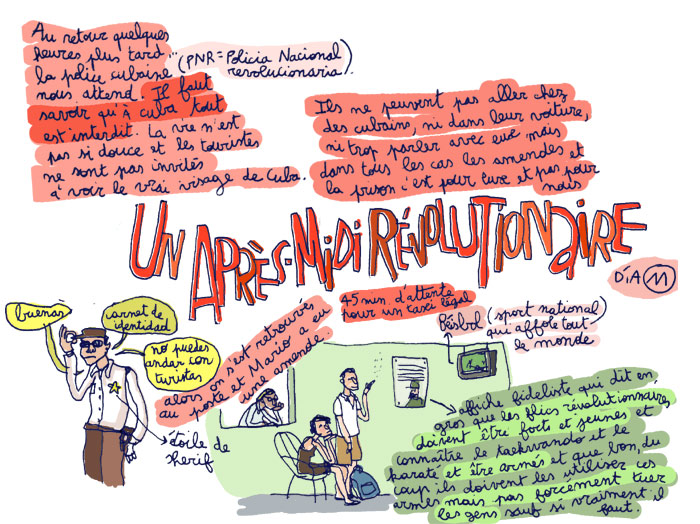 Au retour quelques
heures plus tard...
la police cubaine
nous attend. Il faut
savoir qu'à cuba tout
est interdit. La vie n'est
pas si douce et les touristes
ne sont pas invités
à voir le vrai visage de Cuba.
(PNR = Policia Nacional
revolucionaria).
Ils ne peuvent pas aller chez
des cubains, ni dans leur voiture,
ni trop parler avec eux mais
dans tous les cas les amendes et
la prison c'est pour eux et pas pour
nous
UN APRÈS-MIDI RÉVOLUTIONAIRE
DíA M
buenas
carnet de
identidad
no puedes
andar con
turistas
étoile de
sherif
alors on s'est retrouvés
au poste et Mario a eu
une amende.
45 min. d'attente
pour un taxi légal
Béisbol (sport national)
qui affole tout
le monde
affiche fideliste qui dit en
gros que les flics révolutionnaires
doivent être fort et jeunes et
connaître le taekwando et le
karate et être armés et que bon, du
coup ils doivent les utiliser ces
armes mais pas forcement tuer
les gens sauf si vraiment il
faut.